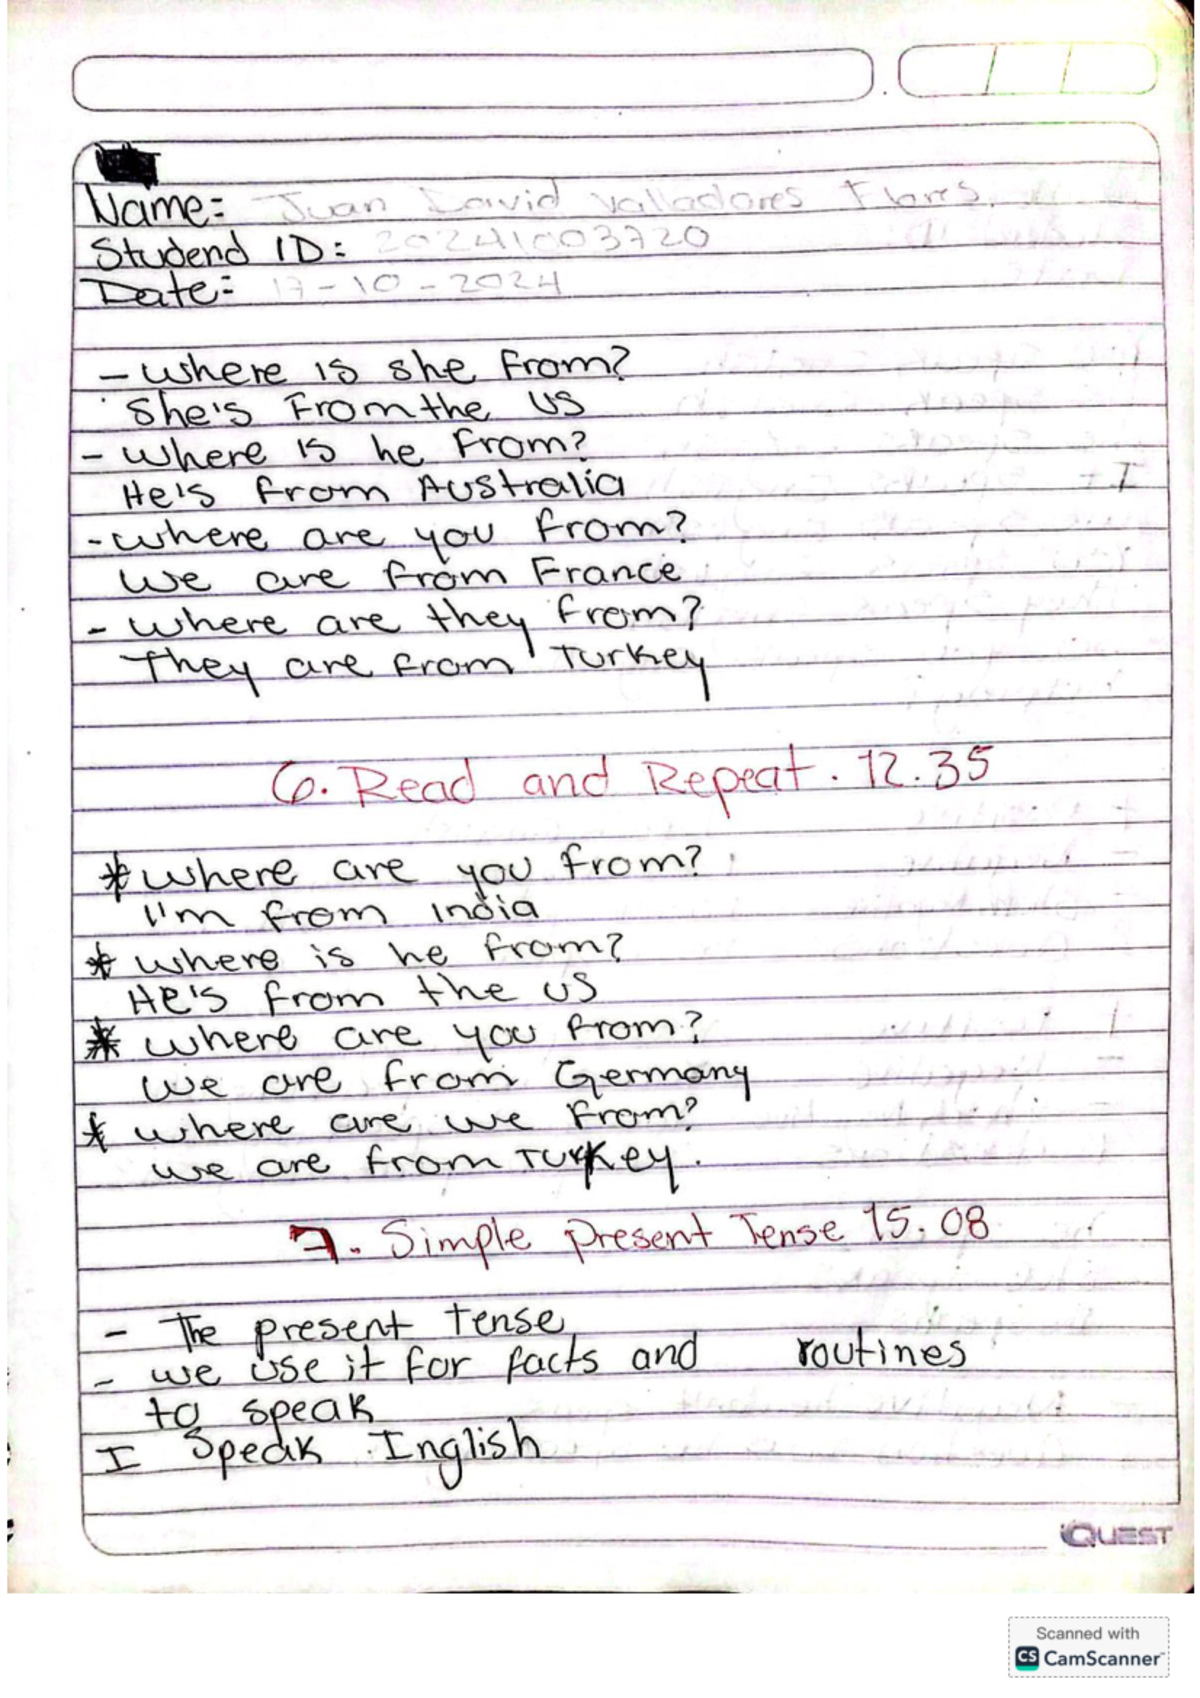 Name: Juan David Valladares Flores.
Studend ID: 20241003720
Date: 17-10-2024
- Where is she from?
She's From the US
- Where is he from?
He's from Australia
- Where are you from?
We are from France
- Where are they from?
They are from Turkey
6. Read and Repeat. 12.35
* Where are you from?
I'm from India
* Where is he from?
He's from the US
* Where are you from?
We are from Germany
* Where are we from?
We are from Turkey.
7. Simple present Tense 15.08
- The present tense
- we use it for facts and routines
to speak
I Speak Inglish
iQUEST
Scanned with
CS CamScanner